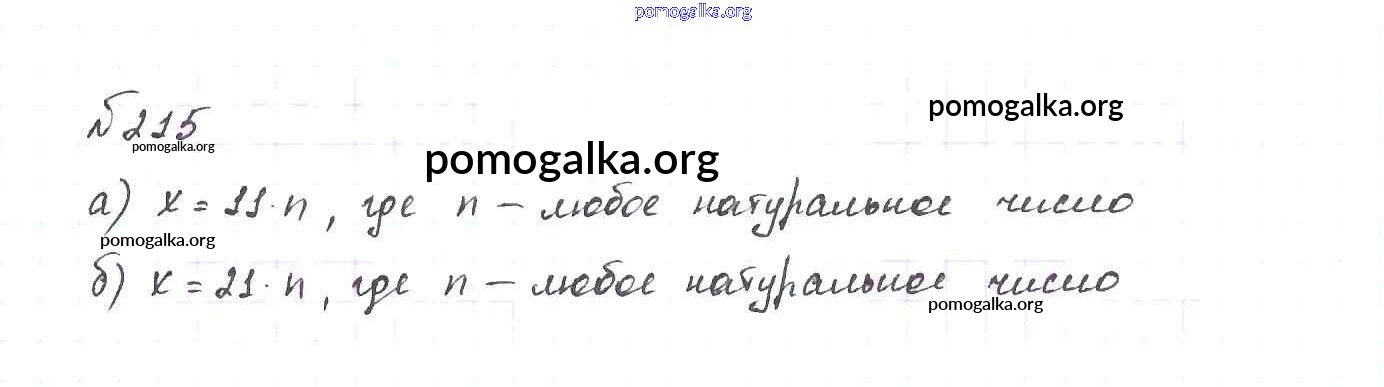 pomogalka.org
pomogalka.org
№215
pomogalka.org
pomogalka.org
а) x = 11·n, где n – любое натуральное число
pomogalka.org
б) x = 21·n, где n – любое натуральное число
pomogalka.org